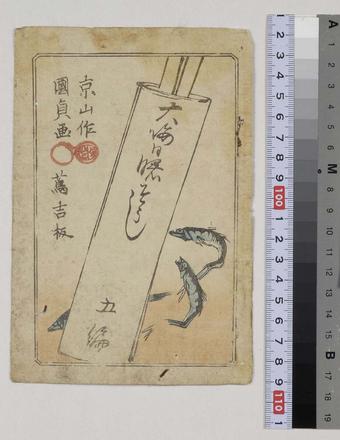 大晦日曙さうし
五編
京山作
國貞画
蔦吉板
1 2 3 4 5 6 7 8 9 100 1 2 3 4 5 6 7 8 9 110 1
A 1 2 3 4 5 6 M 8 9 10 11 12 13 14 15 B 17 18 19